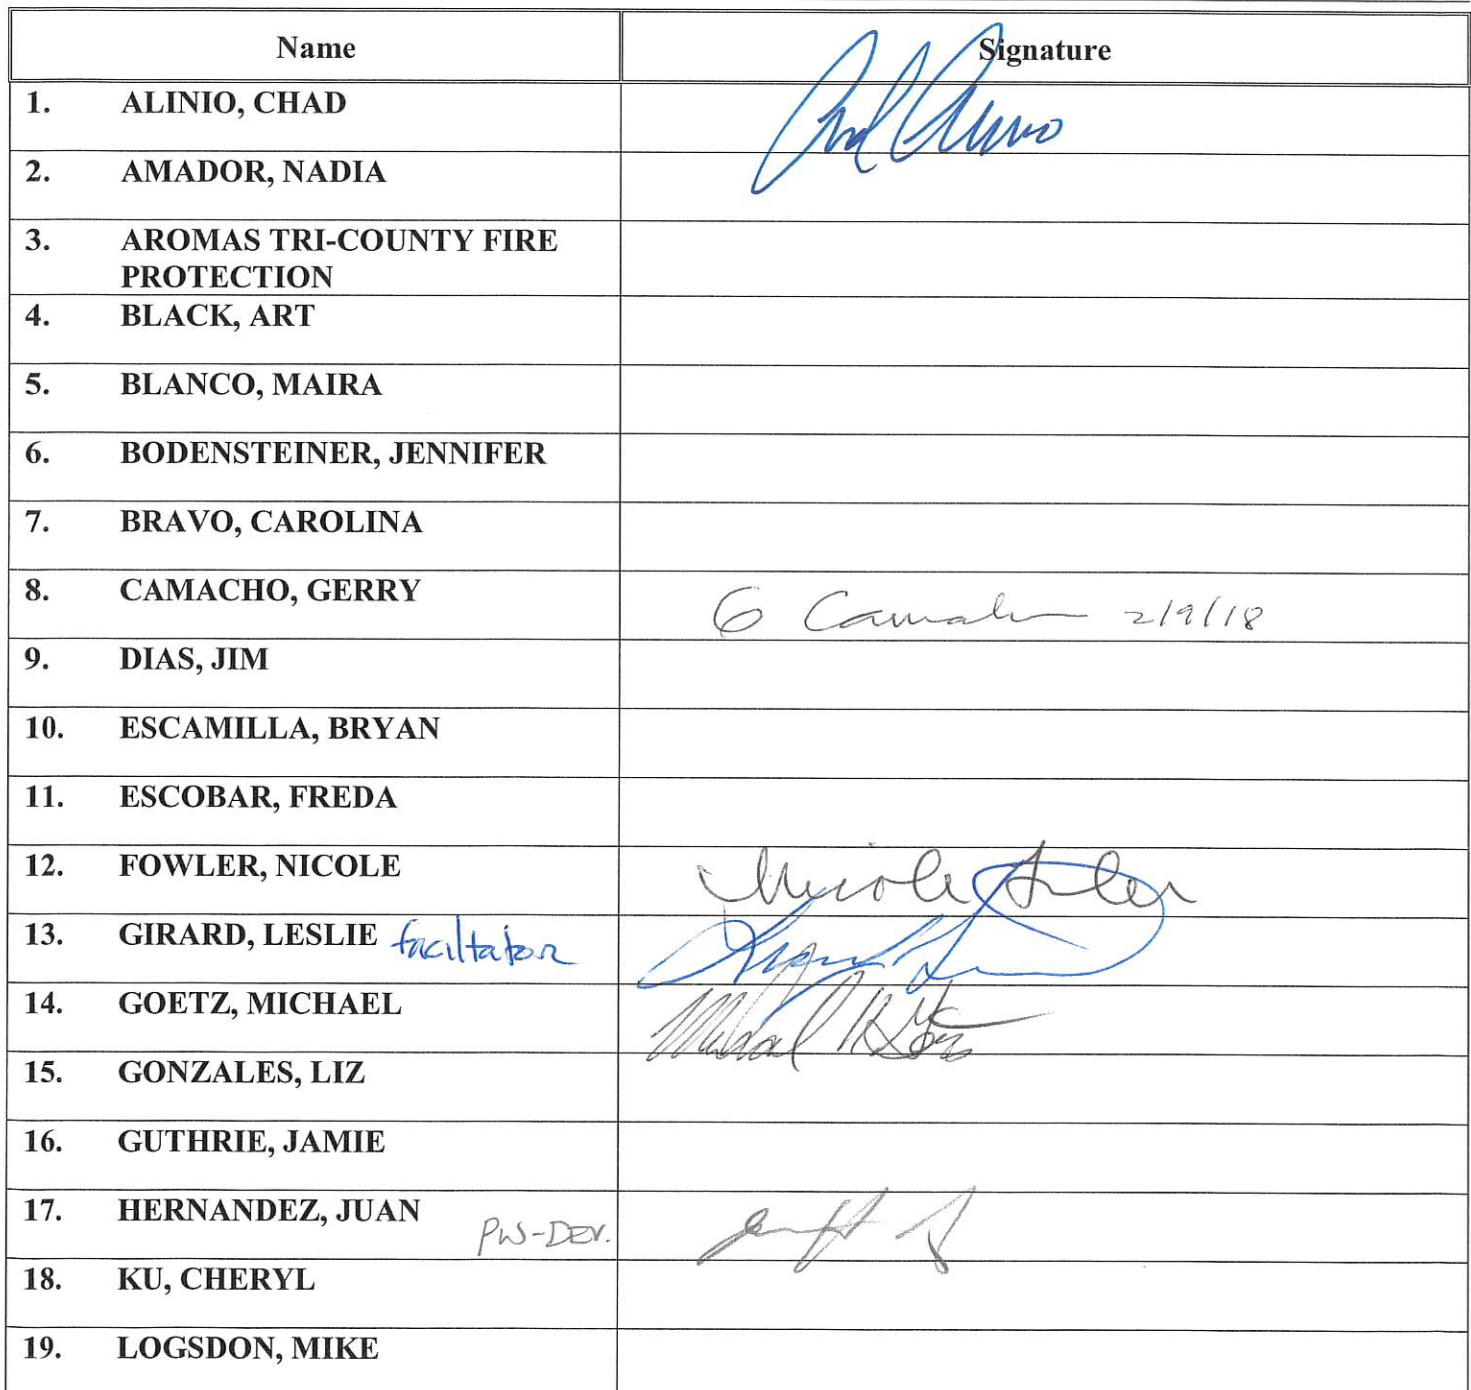 Name Signature
1. ALINIO, CHAD
2. AMADOR, NADIA
3. AROMAS TRI-COUNTY FIRE
PROTECTION
4. BLACK, ART
5. BLANCO, MAIRA
6. BODENSTEINER, JENNIFER
7. BRAVO, CAROLINA
8. CAMACHO, GERRY G Camacho 2/9/18
9. DIAS, JIM
10. ESCAMILLA, BRYAN
11. ESCOBAR, FREDA
12. FOWLER, NICOLE Nicole Fowler
13. GIRARD, LESLIE faciltator
14. GOETZ, MICHAEL Michael
15. GONZALES, LIZ
16. GUTHRIE, JAMIE
17. HERNANDEZ, JUAN PW-DEV.
18. KU, CHERYL
19. LOGSDON, MIKE